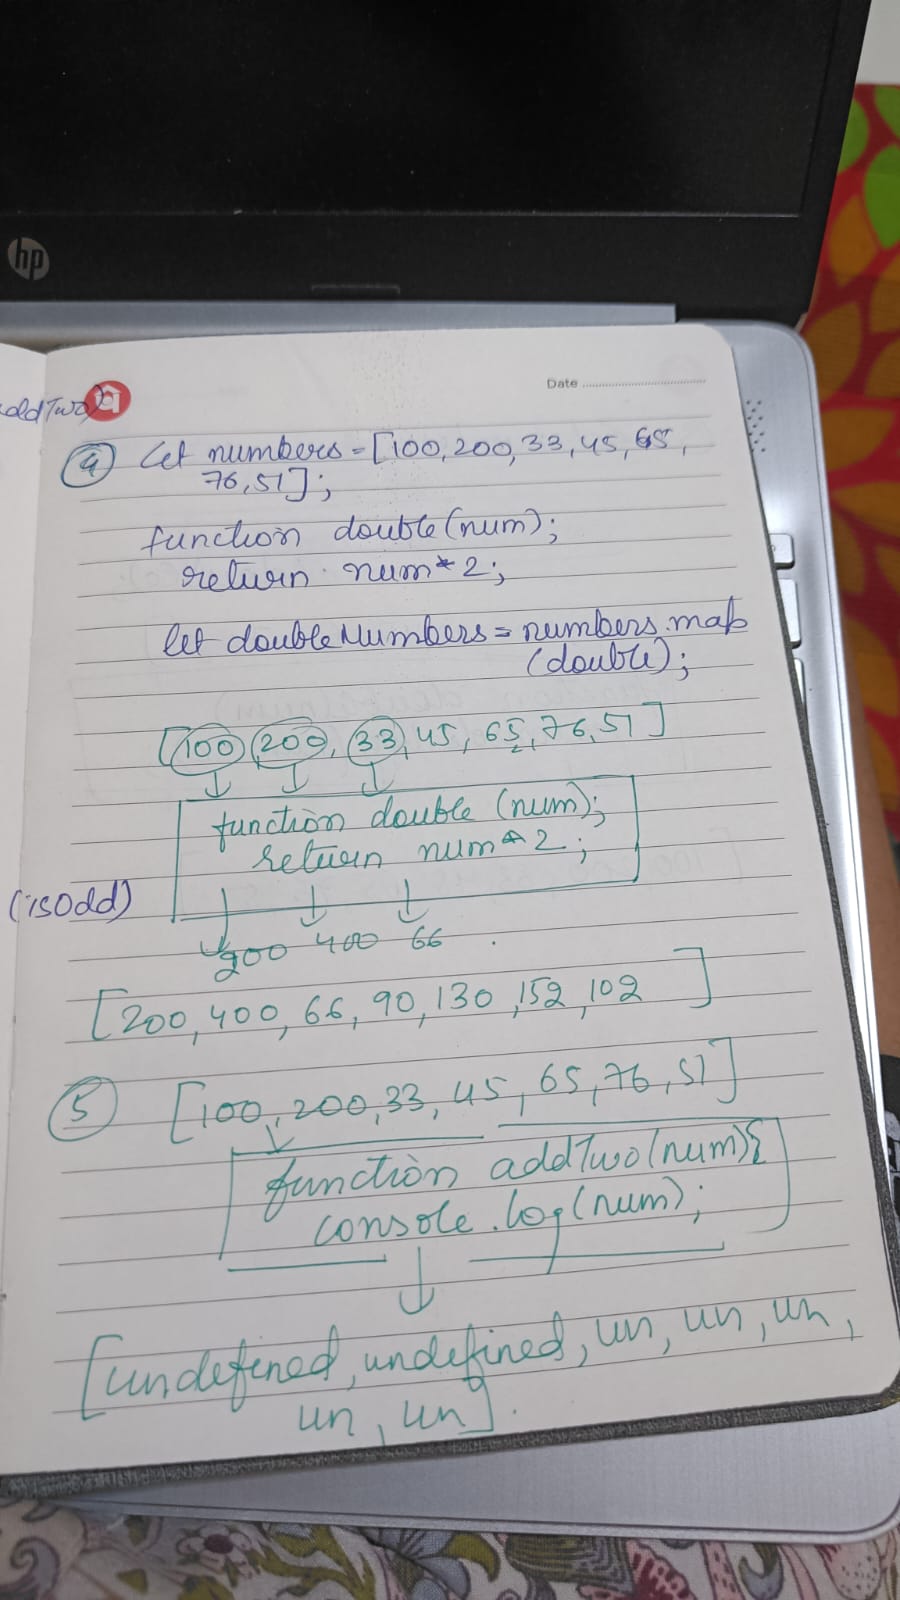 hp
Date
addTwo)
④ let numbers = [100, 200, 33, 45, 65,
76, 51];
function double (num);
return num * 2;
let doubleNumbers = numbers.map
(double);
[100, 200, 33, 45, 65, 76, 51]
function double (num);
return num * 2;
(isOdd)
200 400 66
[200, 400, 66, 90, 130, 152, 102 ]
⑤ [100, 200, 33, 45, 65, 76, 51]
function addTwo(num){
console.log(num);
[undefined, undefined, un, un, un,
un, un].